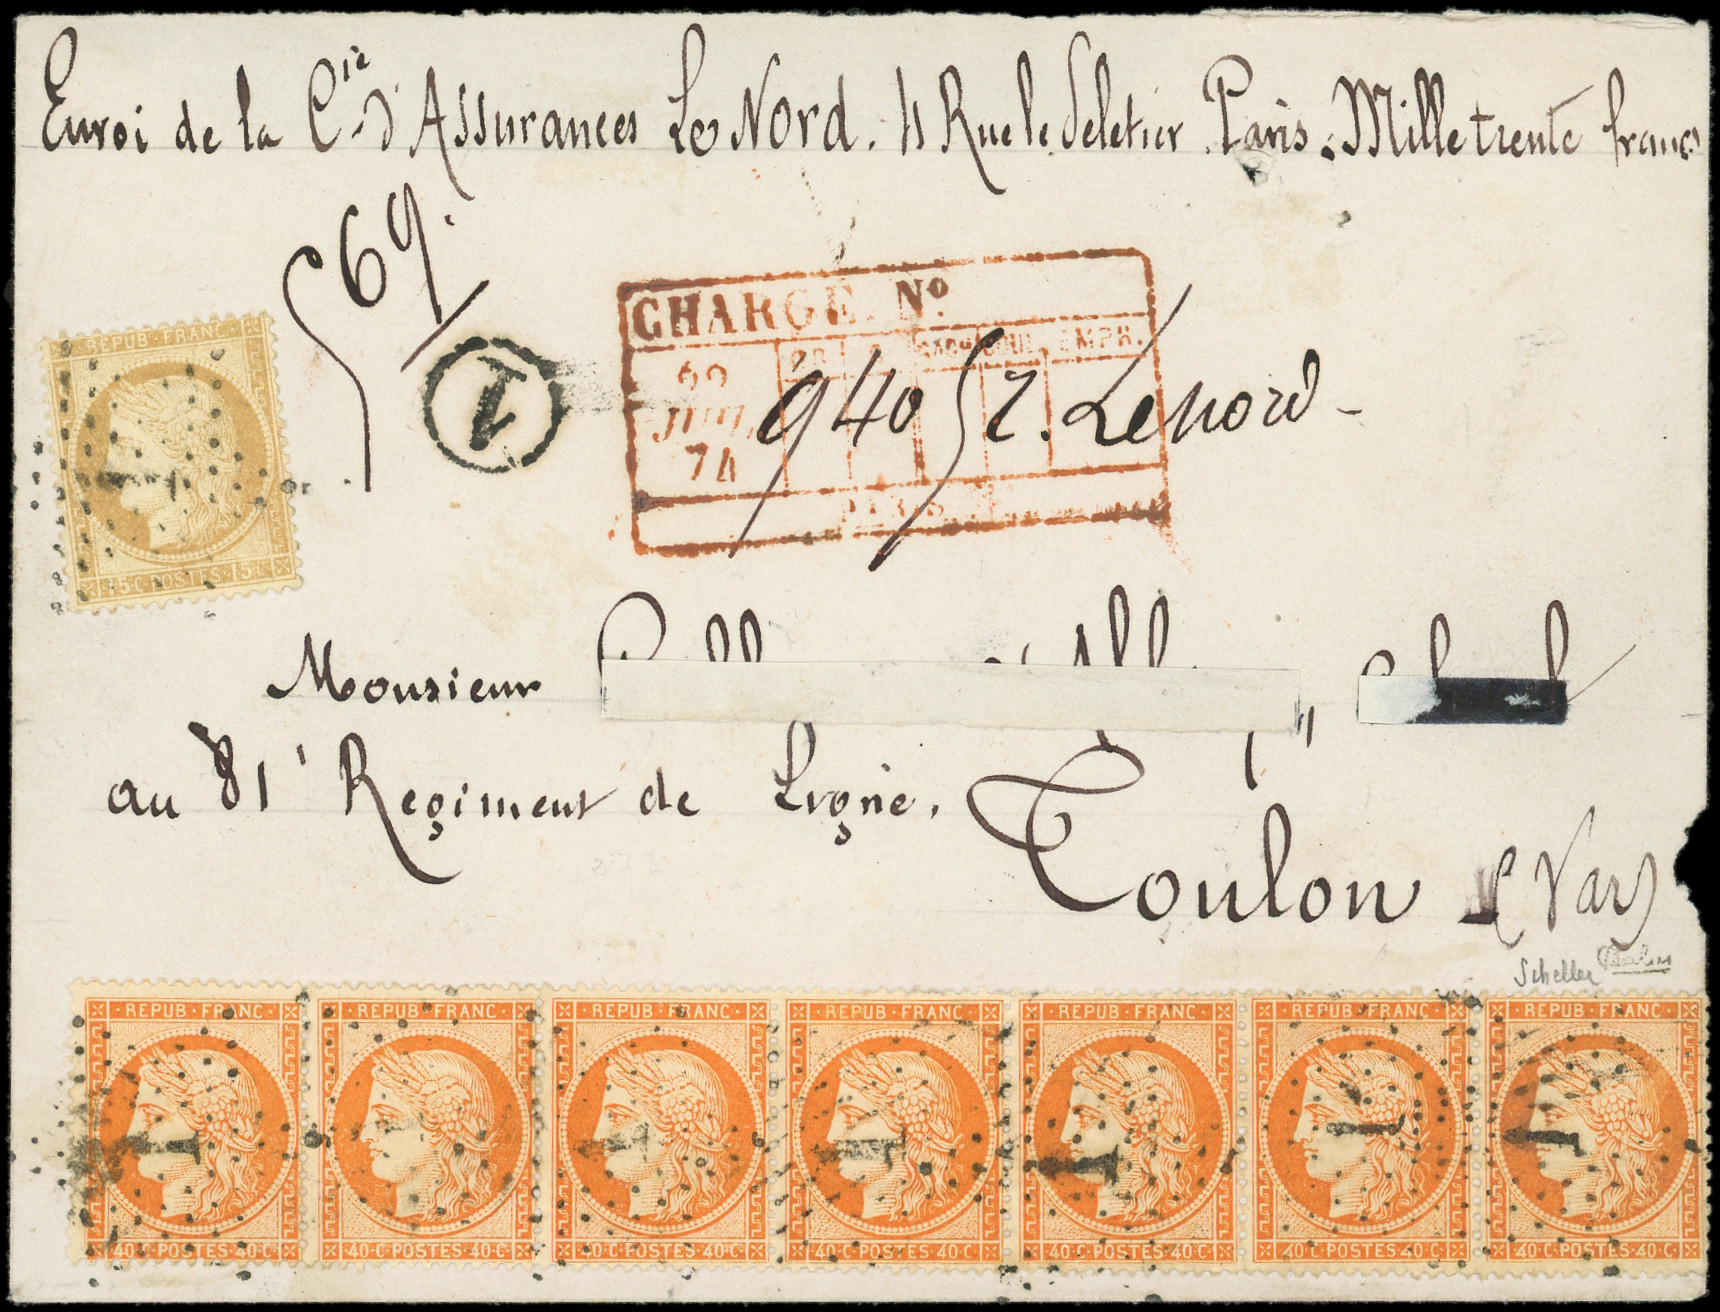 Envoi de la Cie d'Assurances Le Nord. 4 Rue le Peletier Paris. Mille trente francs
569.
REPUB · FRANC
15 · C · POSTES · 15 · C
1
CHARGÉ. Nº
JUIL.
74
PARIS
940 52. Le nord -
Monsieur
au 81' Regiment de Ligne.
Toulon
(Var)
Scheller
REPUB · FRANC · REPUB · FRANC · REPUB · FRANC · REPUB · FRANC · REPUB · FRANC · REPUB · FRANC · REPUB · FRANC
1 1 1 1 1 1 1
40 · C · POSTES · 40 · C 40 · C · POSTES · 40 · C 40 · C · POSTES · 40 · C 40 · C · POSTES · 40 · C 40 · C · POSTES · 40 · C 40 · C · POSTES · 40 · C 40 · C · POSTES · 40 · C